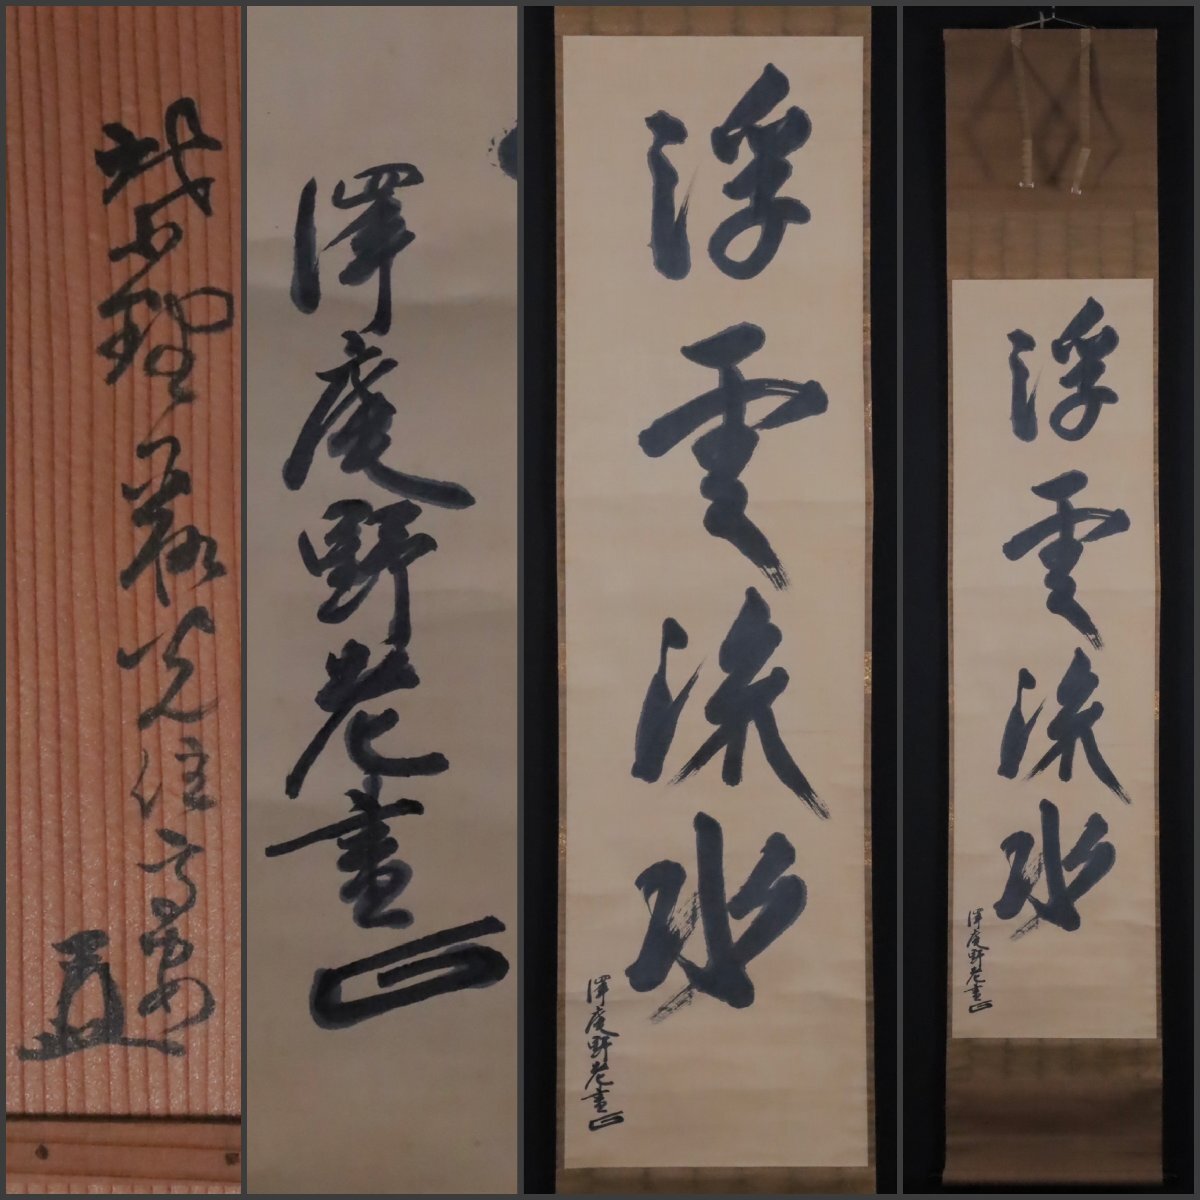 紫野
澤庵野老書
浮雲流水
澤庵野老書
浮雲流水
澤庵野老書